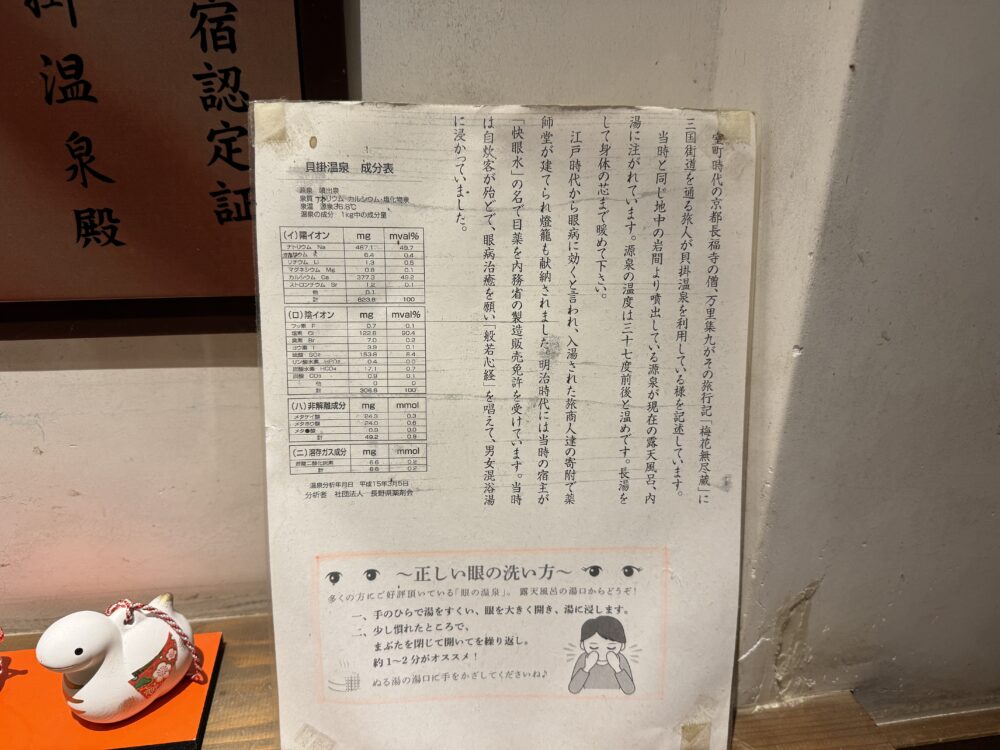 宿認定証
掛温泉殿
室町時代の京都長福寺の僧、万里集九がその旅行記「梅花無尽蔵」に
三国街道を通る旅人が貝掛温泉を利用している様を記述しています。
当時と同じ地中の岩間より噴出している源泉が現在の露天風呂、内
湯に注がれています。源泉の温度は三十七度前後と温めです。長湯を
して身体の芯まで暖めて下さい。
江戸時代から眼病に効くと言われ、入湯された旅商人達の寄附で薬
師堂が建てられ燈籠も献納されました。明治時代には当時の宿主が
「快眼水」の名で目薬を内務省の製造販売免許を受けています。当時
は自炊客が殆どで、眼病治癒を願い「般若心経」を唱えて、男女混浴湯
に浸かっていました。
貝掛温泉 成分表
源泉 噴出泉
泉質 ナトリウム・カルシウム・塩化物泉
泉温 源泉36.8℃
温泉の成分 1kg中の成分量
(イ)陽イオン mg mval%
ナトリウム Na 467.1 49.7
6.4 0.4
リチウム Li 1.3 0.5
マグネシウム Mg 0.8 0.1
カルシウム Ca 377.3 49.2
ストロンチウム Sr 1.2 0.1
他 0.1
計 100
(ロ)陰イオン mg mval%
フッ素 F 0.7 0.1
塩素 Cl 90.4
臭素 Br 7.0 0.2
ヨウ素 I 3.9 0.1
硫酸 SO4 153.8 8.4
リン酸水素 HPO4 0.4 0.0
炭酸水素 HCO3 17.1 0.7
炭酸 CO3 0.9 0.1
他 0 0
計 100
(ハ)非解離成分 mg mmol
メタケイ酸 24.3 0.3
メタホウ酸 24.0 0.6
0.9 0.0
計 49.2 0.9
(ニ)溶存ガス成分 mg mmol
遊離二酸化炭素 6.6 0.2
計 6.6 0.2
温泉分析年月日 平成15年3月5日
分析者 社団法人 長野県薬剤師会
～正しい眼の洗い方～
多くの方にご好評頂いている「眼の温泉」。露天風呂の湯口からどうぞ!
一、手のひらで湯をすくい、眼を大きく開き、湯に浸します。
二、少し慣れたところで、
まぶたを閉じて開いてを繰り返し。
約1～2分がオススメ!
ぬる湯の湯口に手をかざしてくださいね♪